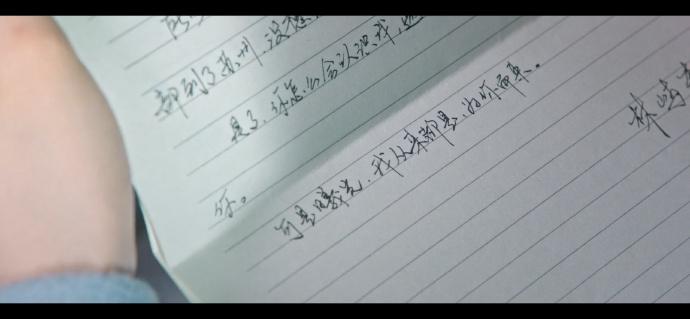 都到了苏州，没想
是了，你怎么会认识我，
你。
可是曦光，我从来都是为你而来。
林屿